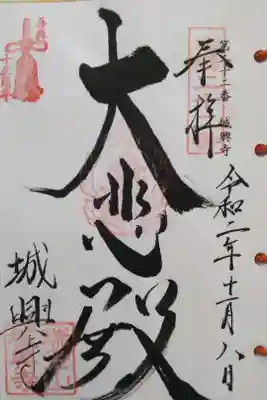 第二十二番 城興寺
奉拝
令和二年十一月八日
大悲殿
城興寺